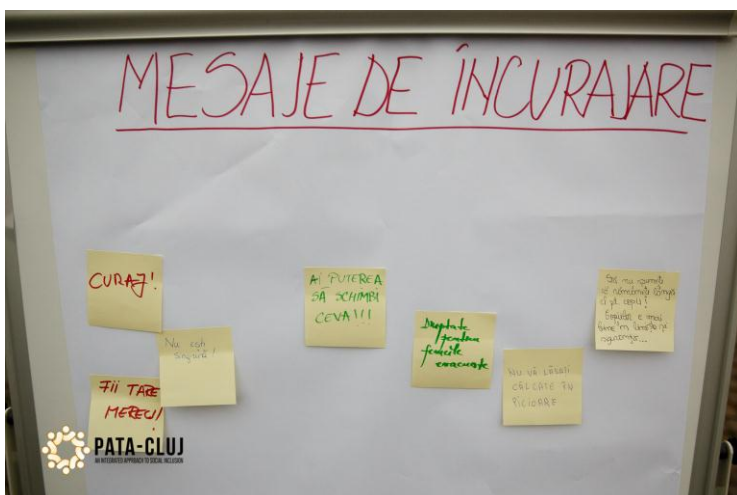 MESAJE DE ÎNCURAJARE
CURAJ!
Nu ești
singură!
FII TARE
MEREU!
AI PUTEREA
SĂ SCHIMBI
CEVA!!!
Dreptate
pentru
femeile
curajoase
NU VĂ LĂSAȚI
CĂLCATE ÎN
PICIOARE
Să nu
rămâneți lângă
el pt. copii!
e mai
bine în liniște și
siguranță...
PATA-CLUJ
AN INTEGRATED APPROACH TO SOCIAL INCLUSION